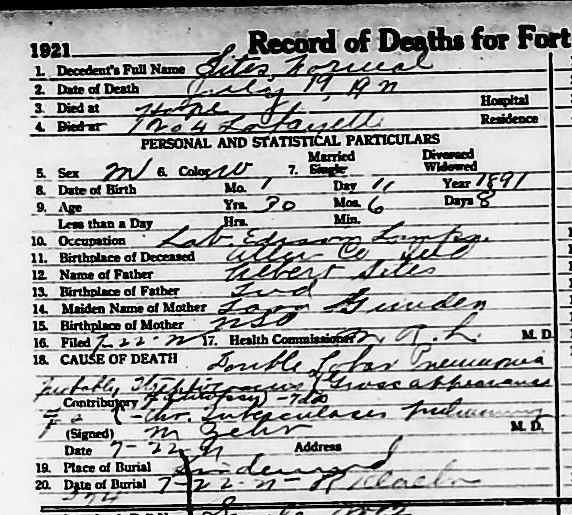 1921 Record of Deaths for Fort
1. Decedent's Full Name Sites, Normal
2. Date of Death July 19, 1921
3. Died at Hope Hospital
4. Died at 1204 Lafayette Residence
PERSONAL AND STATISTICAL PARTICULARS
Married Divorced
5. Sex M 6. Color W 7. Single Widowed
8. Date of Birth Mo. 1 Day 11 Year 1891
9. Age Yrs. 30 Mos. 6 Days 8
Less than a Day Hrs. Min.
10. Occupation Lab Edison Lamps.
11. Birthplace of Deceased Allen Co Ind
12. Name of Father Sites
13. Birthplace of Father Ind
14. Maiden Name of Mother
15. Birthplace of Mother
16. Filed 7-22-21 17. Health Commissioner M. D.
18. CAUSE OF DEATH Double Lobar Pneumonia
probably Streptococcus (Gross appearance
Contributory Autopsy) - 7da
Chr. Tuberculosis pulmonary
(Signed) M. D.
Date 7-22-21 Address
19. Place of Burial Lindenwood
20. Date of Burial 7-22-21